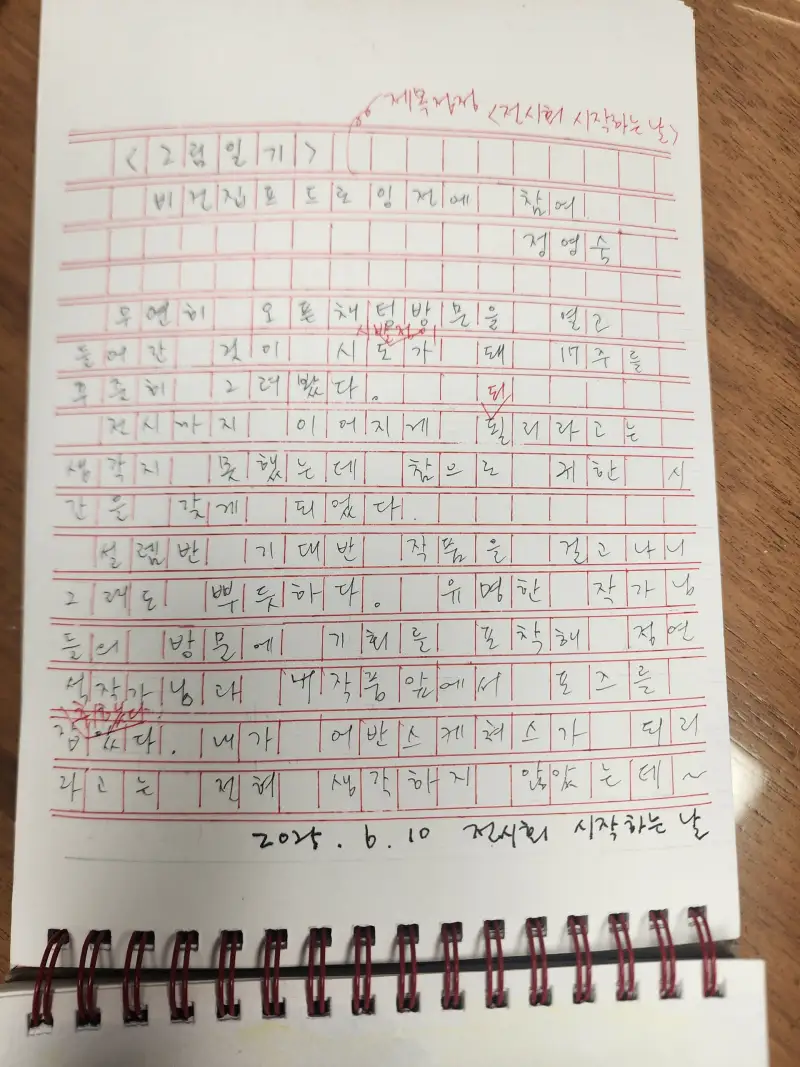 제목점정 <전시회 시작하는 날>
<그림일기>
비전집포드로잉전에 참여
정영숙
우연히 오픈채팅방문을 열고
시발점이
들어간 것이 시도가 돼 17주를
꾸준히 그려봤다.
되
전시까지 이어지게 될리라고는
생각지 못했는데 참으로 귀한 시
간을 갖게 되었다.
설렘반 기대반 작품을 걸고나니
그래도 뿌듯하다. 유명한 작가님
들의 방문에 기회를 포착해 정연
석작가님과 내작품앞에서 포즈를
잡았다. 내가 어반스케쳐스가 되리
라고는 전혀 생각하지 않았는데~
2025. 9. 10 전시회 시작하는 날